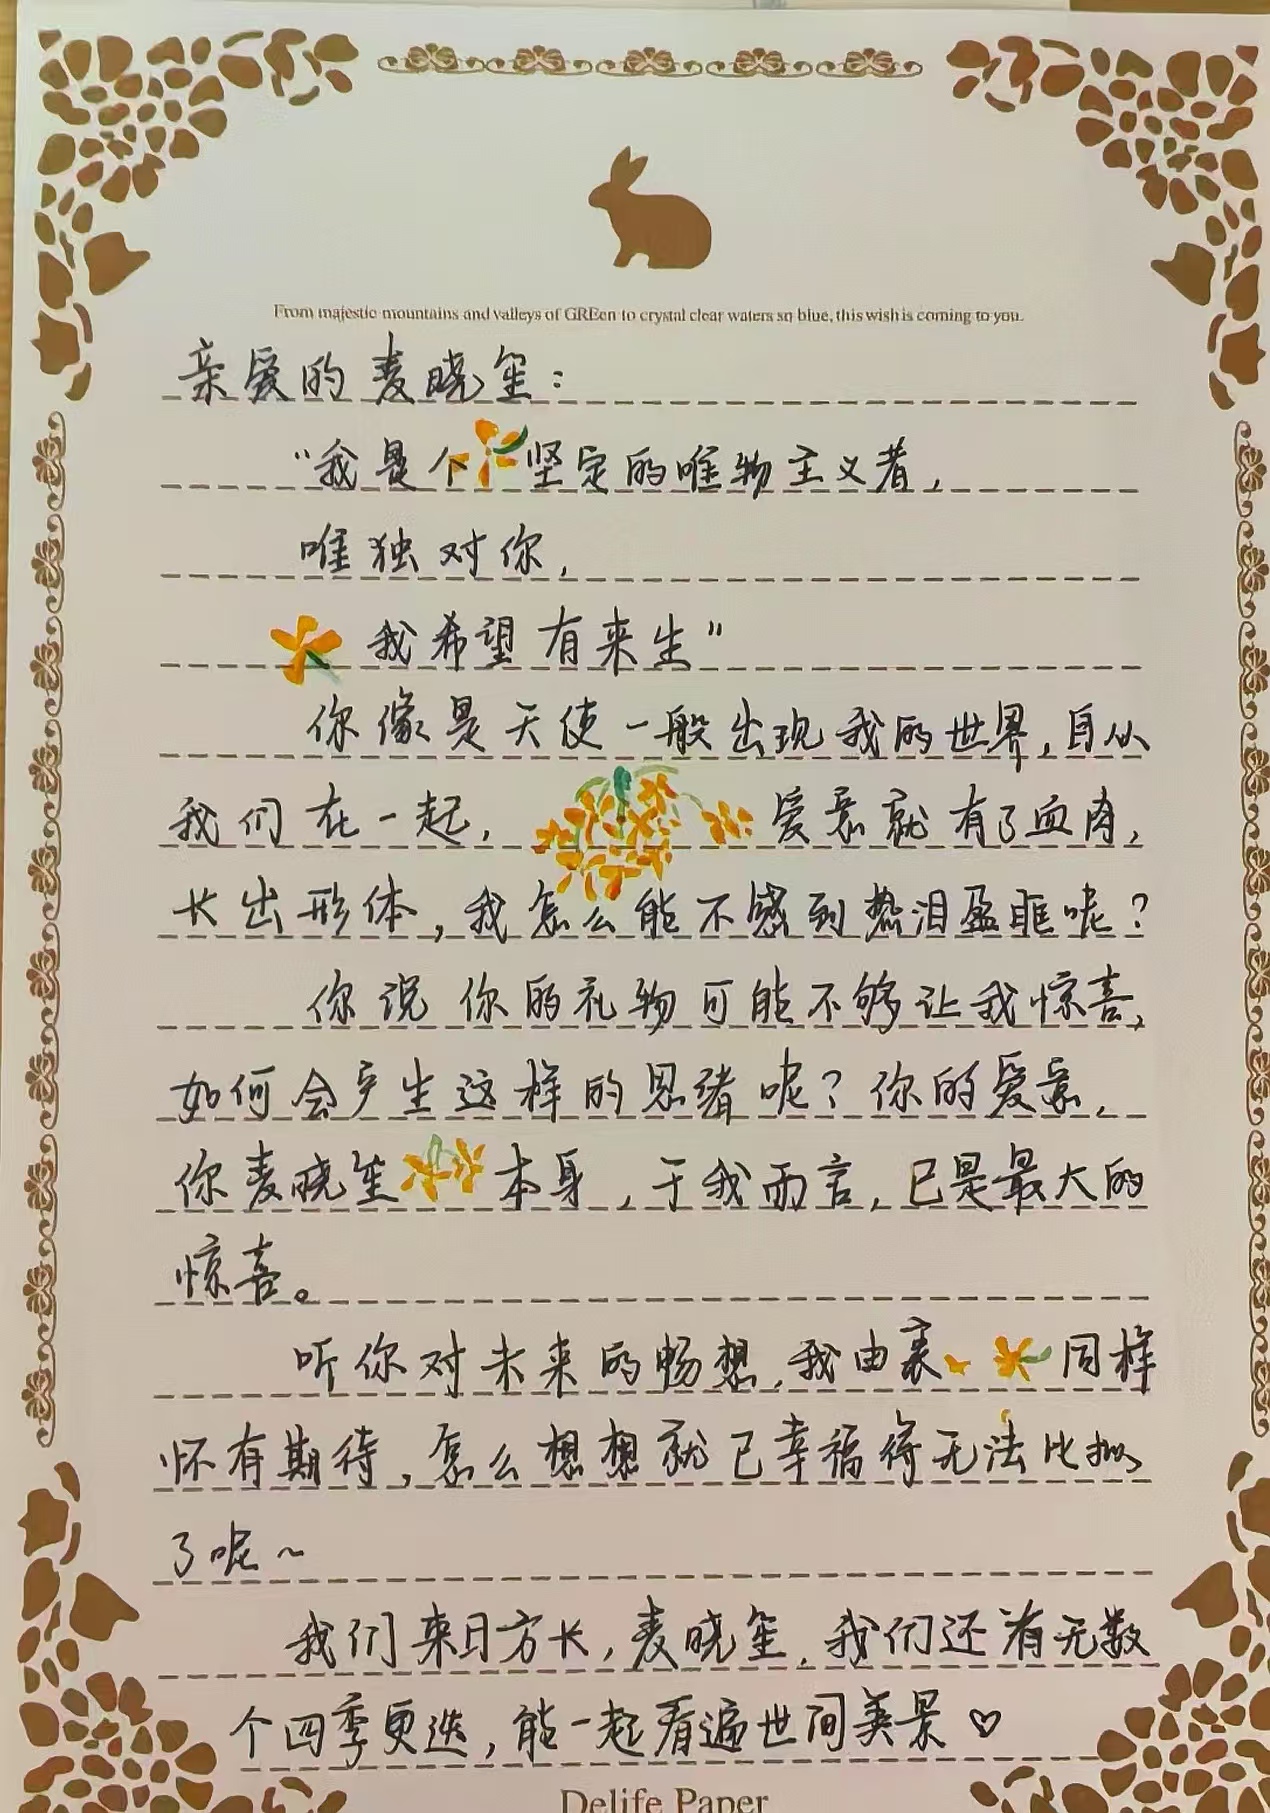 From majestic mountains and valleys of GREen to crystal clear waters so blue, this wish is coming to you.
亲爱的麦晓笙：
“我是个坚定的唯物主义者，
唯独对你，
我希望有来生”
你像是天使一般出现我的世界，自从
我们在一起，爱意就有了血肉，
长出形体，我怎么能不感到热泪盈眶呢？
你说你的礼物可能不够让我惊喜，
如何会产生这样的思绪呢？你的爱意，
你麦晓笙本身，于我而言，已是最大的
惊喜。
听你对未来的畅想，我由衷同样
怀有期待，怎么想想就已幸福得无法比拟
了呢~
我们来日方长，麦晓笙，我们还有无数
个四季更迭，能一起看遍世间美景♡
Delife Paper